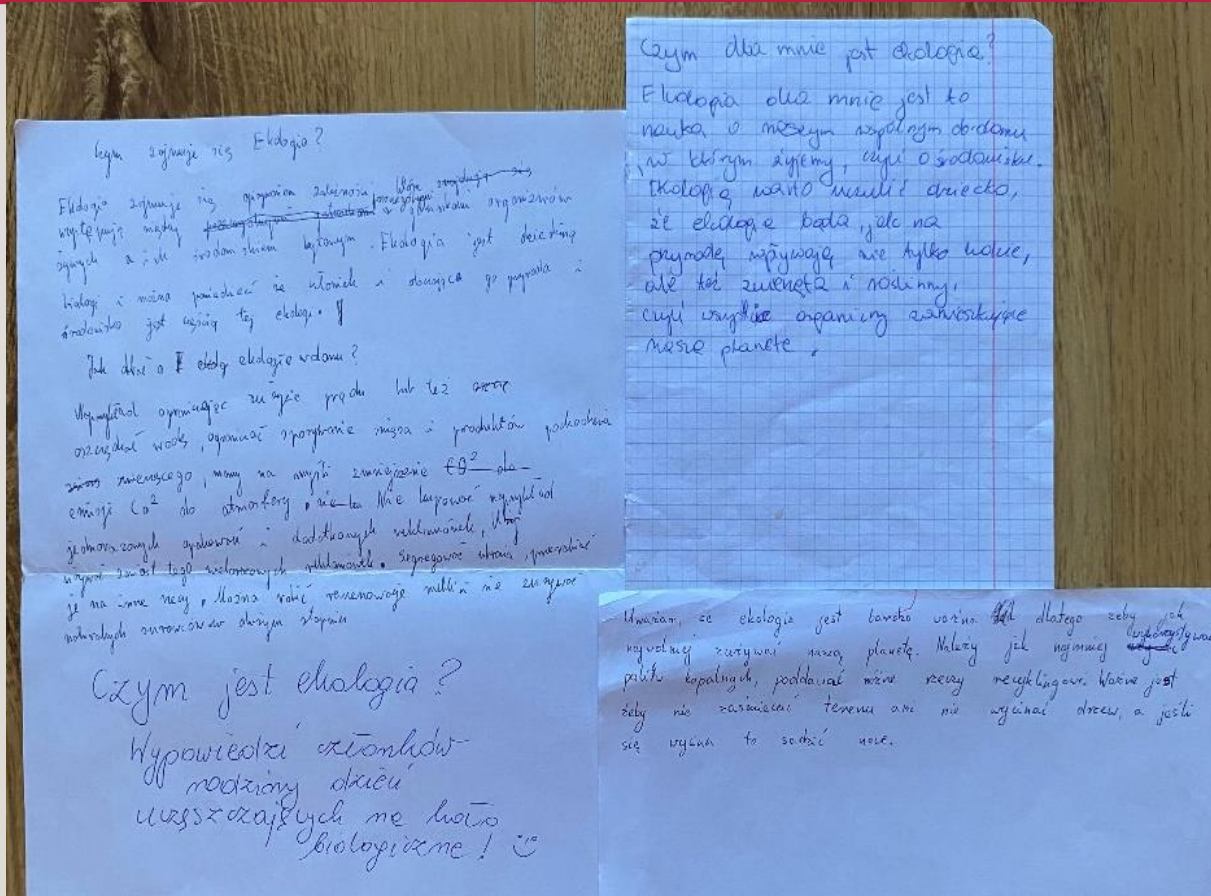 Czym zajmuje się Ekologia?
Ekologia zajmuje się zależności, które
występują między a organizmów
żywych a ich środowiskiem bytowym. Ekologia jest dziedziną
biologi i można powiedzieć że człowiek i otaczająca go przyroda i
środowisko jest częścią tej ekologi.
Jak dbać o ekologie w domu?
Naprzykład ograniczając zużycie prądu lub też
oszczędzać wodę, ograniczać spożywanie mięsa i produktów pochodzenia
zwierzęcego, mamy na myśli zmniejszenie
emisji Co² do atmosfery. Nie kupować naprzykład
jednorazowych opakowań i dodatkowych reklamówek,
używać zamiast tego reklamówek. Segregować śmieci, przerabiać
je na inne rzeczy. Można robić renowacje mebli i nie zużywać
naturalnych surowców w dużym stopniu
Czym jest ekologia?
Wypowiedzi członków
rodziny dzieci
uczęszczających na koło
biologiczne!
Czym dla mnie jest ekologia?
Ekologia dla mnie jest to
nauka o naszym wspólnym do domu
w którym żyjemy, czyli o środowisku.
Ekologią warto uczulić dziecko,
że ekologie bada, jak na
przyrodę wpływają nie tylko
ale też zwierzęta i rośliny,
czyli wszystkie organizmy zamieszkujące
naszą planete.
Uważam, że ekologia jest bardzo ważna dlatego żeby jak
najwolniej zużywać naszą planetę. Należy jak najmniej wykorzystywać
paliw kopalnych, poddawać różne rzeczy recyklingowi. Ważne jest
żeby nie zaśmiecać terenu ani nie wycinać drzew, a jeśli
się wycina to sadzić nowe.